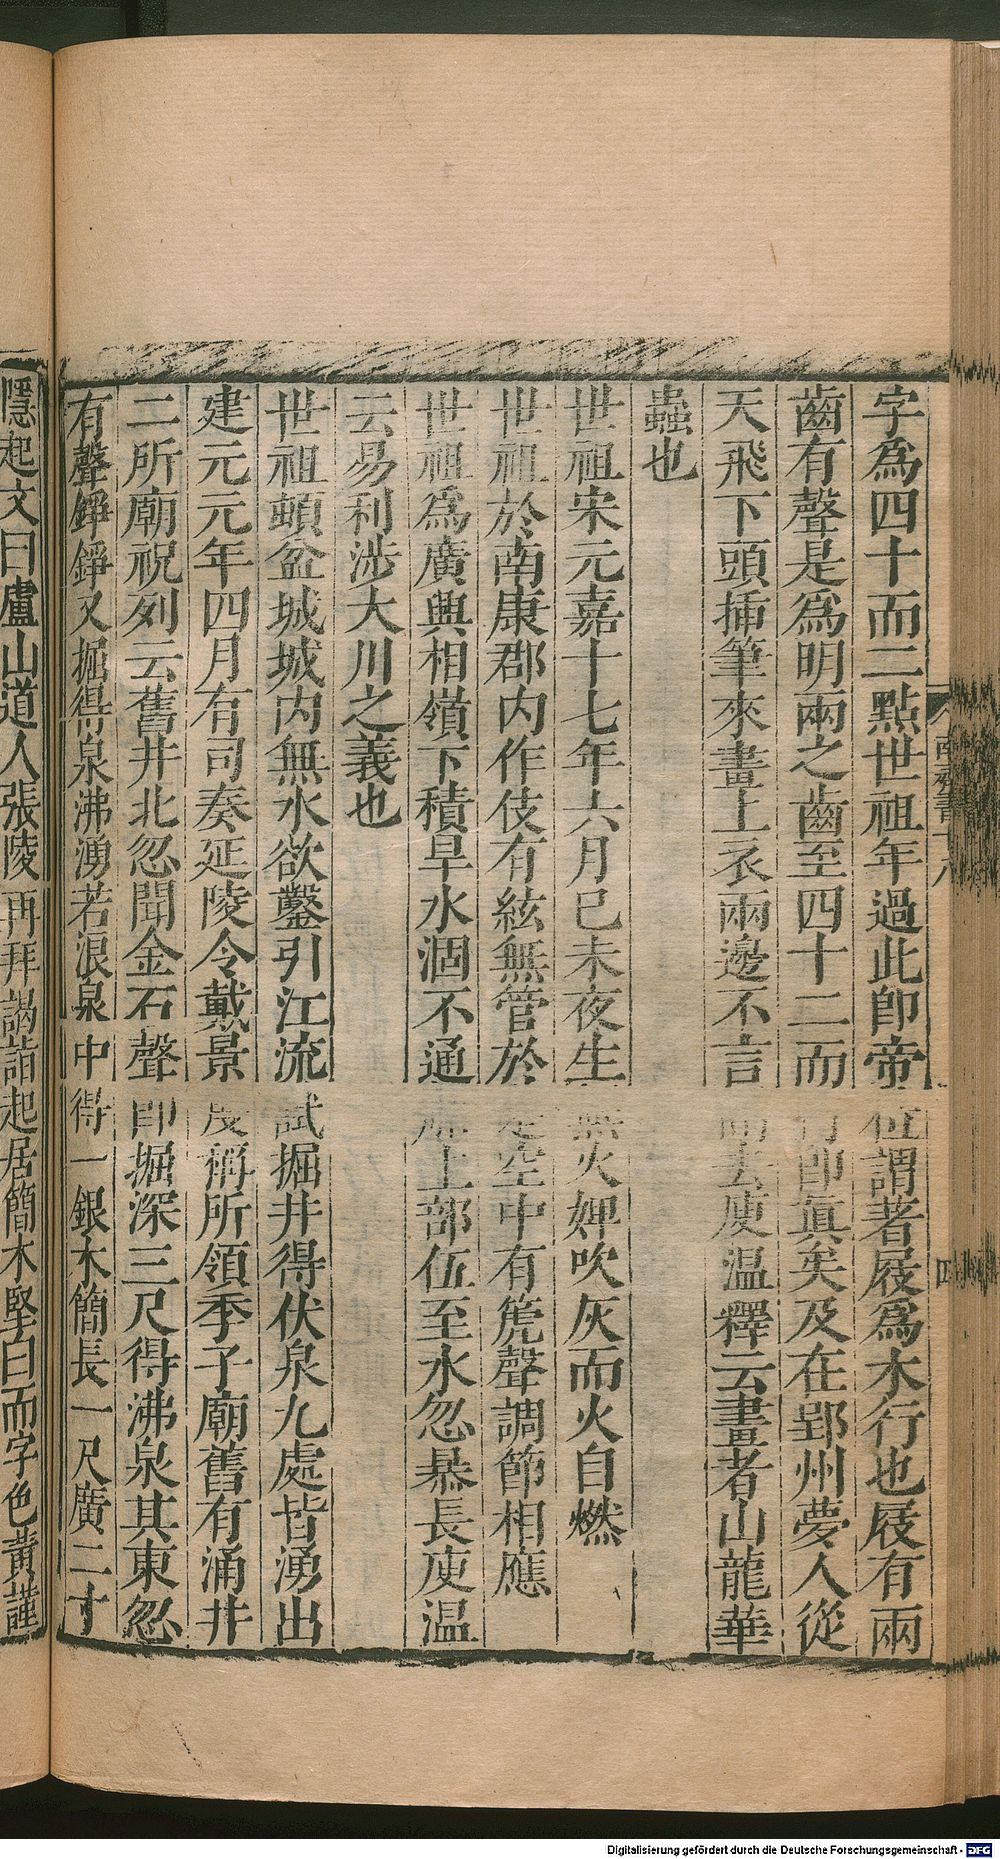 字爲四十而二點世祖年過此卽帝位謂著屐爲木行也屐有兩
齒有聲是爲明兩之齒至四十二而行卽眞矣及在郢州夢人從
天飛下頭揷筆來畫上衣兩邊不言而去庾温釋云畫者山龍華
蟲也
世祖宋元嘉十七年六月己未夜生無火婢吹灰而火自燃
世祖於南康郡内作伎有絃無管於是空中有箎聲調節相應
世祖爲廣興相嶺下積旱水涸不通船上部伍至水忽暴長庾温
云易利涉大川之義也
世祖頓盆城城内無水欲鑿引江流試掘井得伏泉九處皆湧出
建元元年四月有司奏延陵令戴景度稱所領季子廟舊有涌井
二所廟祝列云舊井北忽聞金石聲卽掘深三尺得沸泉其東忽
有聲錚錚又掘得泉沸湧若浪泉中得一銀木簡長一尺廣二寸
隱起文曰廬山道人張陵再拜謁詣起居簡木堅白而字色黃謹
南齊書十八
四
Digitalisierung gefördert durch die Deutsche Forschungsgemeinschaft - DFG